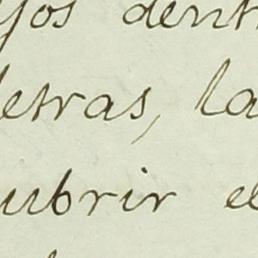 yos dent
letras, la
ubrir el